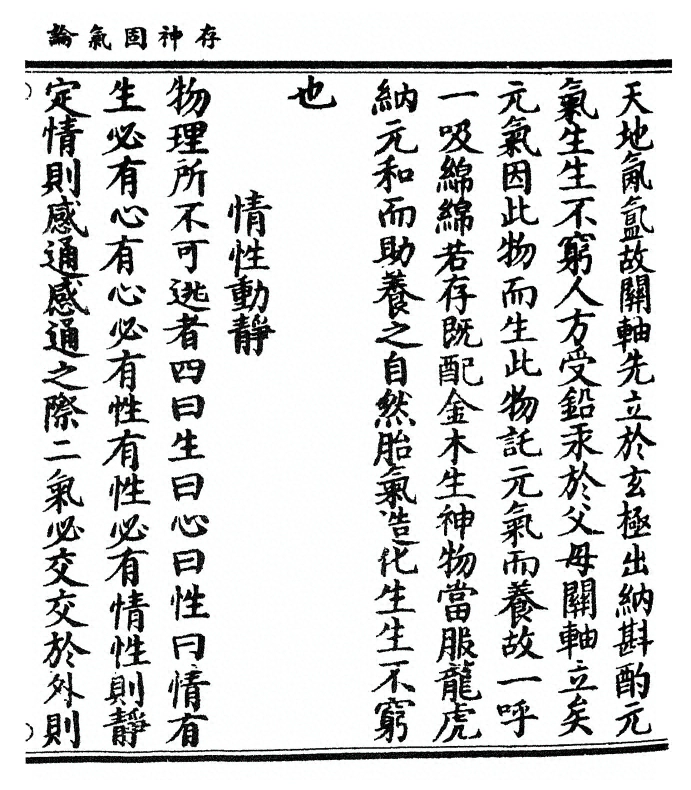 存神固氣論
天地氤氳故關軸先立於玄極出納斟酌元
氣生生不窮人方受鉛汞於父母關軸立矣
元氣因此物而生此物託元氣而養故一呼
一吸綿綿若存既配金木生神物當服龍虎
納元和而助養之自然胎氣造化生生不窮
也
情性動靜
物理所不可逃者四曰生曰心曰性曰情有
生必有心有心必有性有性必有情性則靜
定情則感通感通之際二氣必交交於外則